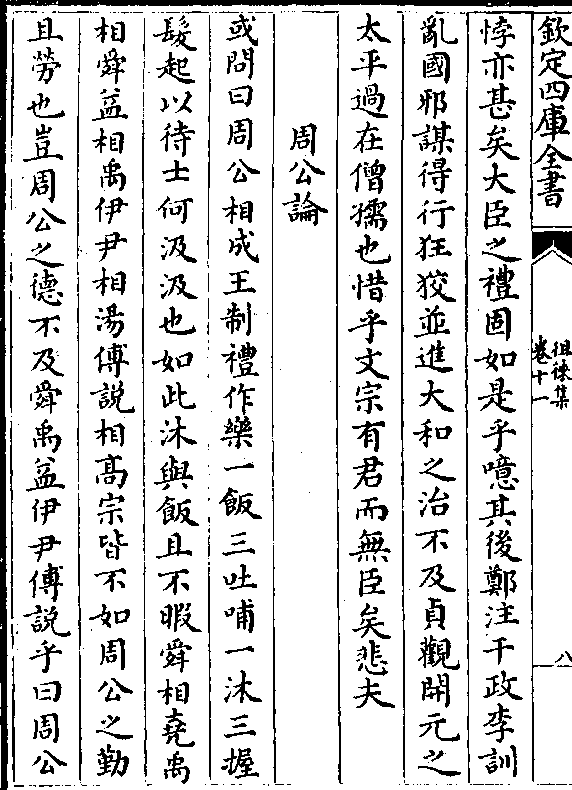 欽定四庫全書
徂徠集
卷十一
八
悖亦甚矣大臣之禮固如是乎噫其後鄭注干政李訓
亂國邪謀得行狂狡並進大和之治不及貞觀開元之
太平過在僧孺也惜乎文宗有君而無臣矣悲夫
周公論
或問曰周公相成王制禮作樂一飯三吐哺一沐三握
髮起以待士何汲汲也如此沐與飯且不暇舜相堯禹
相舜益相禹伊尹相湯傅說相高宗皆不如周公之勤
且勞也豈周公之德不及舜禹益伊尹傅說乎曰周公